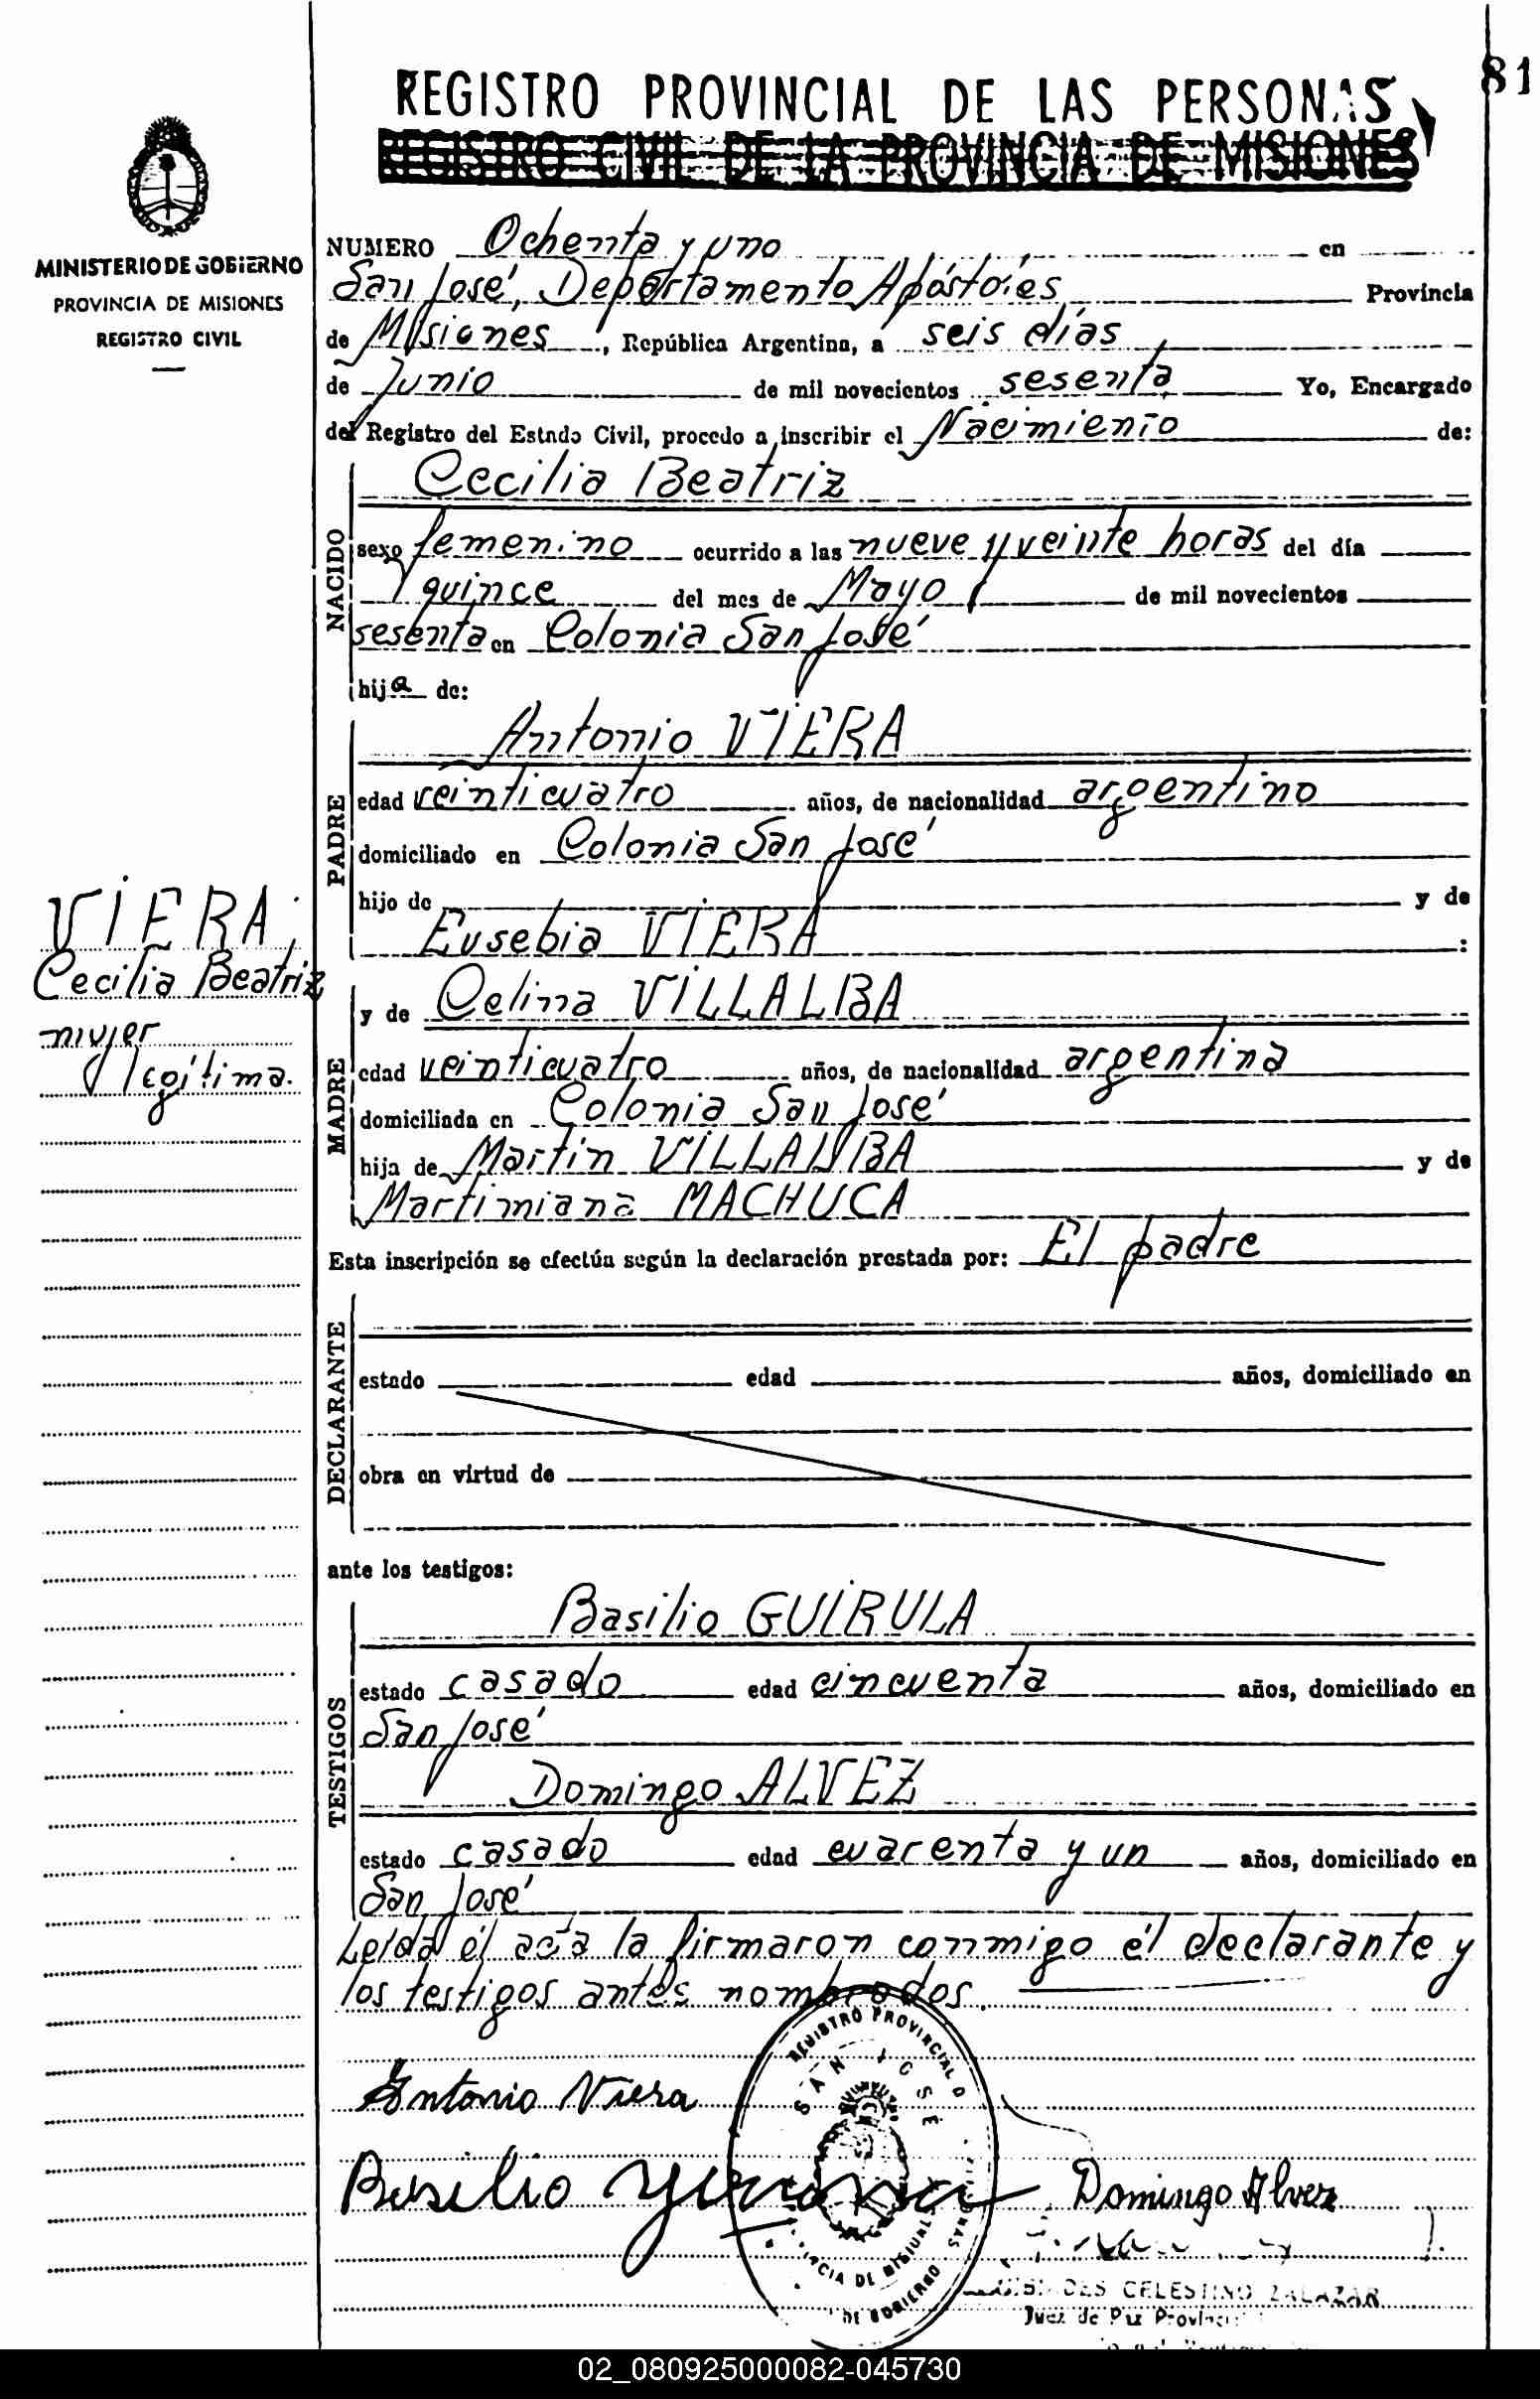 81
REGISTRO PROVINCIAL DE LAS PERSONAS
REGISTRO CIVIL DE LA PROVINCIA DE MISIONES
MINISTERIO DE GOBIERNO
PROVINCIA DE MISIONES
REGISTRO CIVIL
NUMERO Ochenta y uno en
San José, Departamento Apóstoles Provincia
de Misiones, República Argentina, a seis días
de Junio de mil novecientos sesenta Yo, Encargado
del Registro del Estado Civil, procedo a inscribir el Nacimiento de:
NACIDO
Cecilia Beatriz
sexo femenino ocurrido a las nueve y veinte horas del día
quince del mes de Mayo de mil novecientos
sesenta en Colonia San José
hija de:
PADRE
Antonio VIERA
edad veinticuatro años, de nacionalidad argentino
domiciliado en Colonia San José
hijo de y de
Eusebia VIERA :
VIERA,
Cecilia Beatriz
mujer
legítima.
MADRE
y de Celina VILLALBA
edad veinticuatro años, de nacionalidad argentina
domiciliada en Colonia San José
hija de Martin VILLALBA y de
Martimiana MACHUCA
Esta inscripción se efectúa según la declaración prestada por: El padre
DECLARANTE
estado edad años, domiciliado en
obra en virtud de
ante los testigos:
TESTIGOS
Basilio GUIRULA
estado casado edad cincuenta años, domiciliado en
San José
Domingo ALVEZ
estado casado edad cuarenta y un años, domiciliado en
San José
Leída él acta la firmaron conmigo él declarante y
los testigos antes nombrados.
REGISTRO PROVINCIAL D
SAN JOSE
PROVINCIA DE MISIONES
DE GOBIERNO
Antonio Viera
Basilio
Domingo Alvez
CELESTINO ZALAZAR
Juez de Paz Provincial
02_080925000082-045730